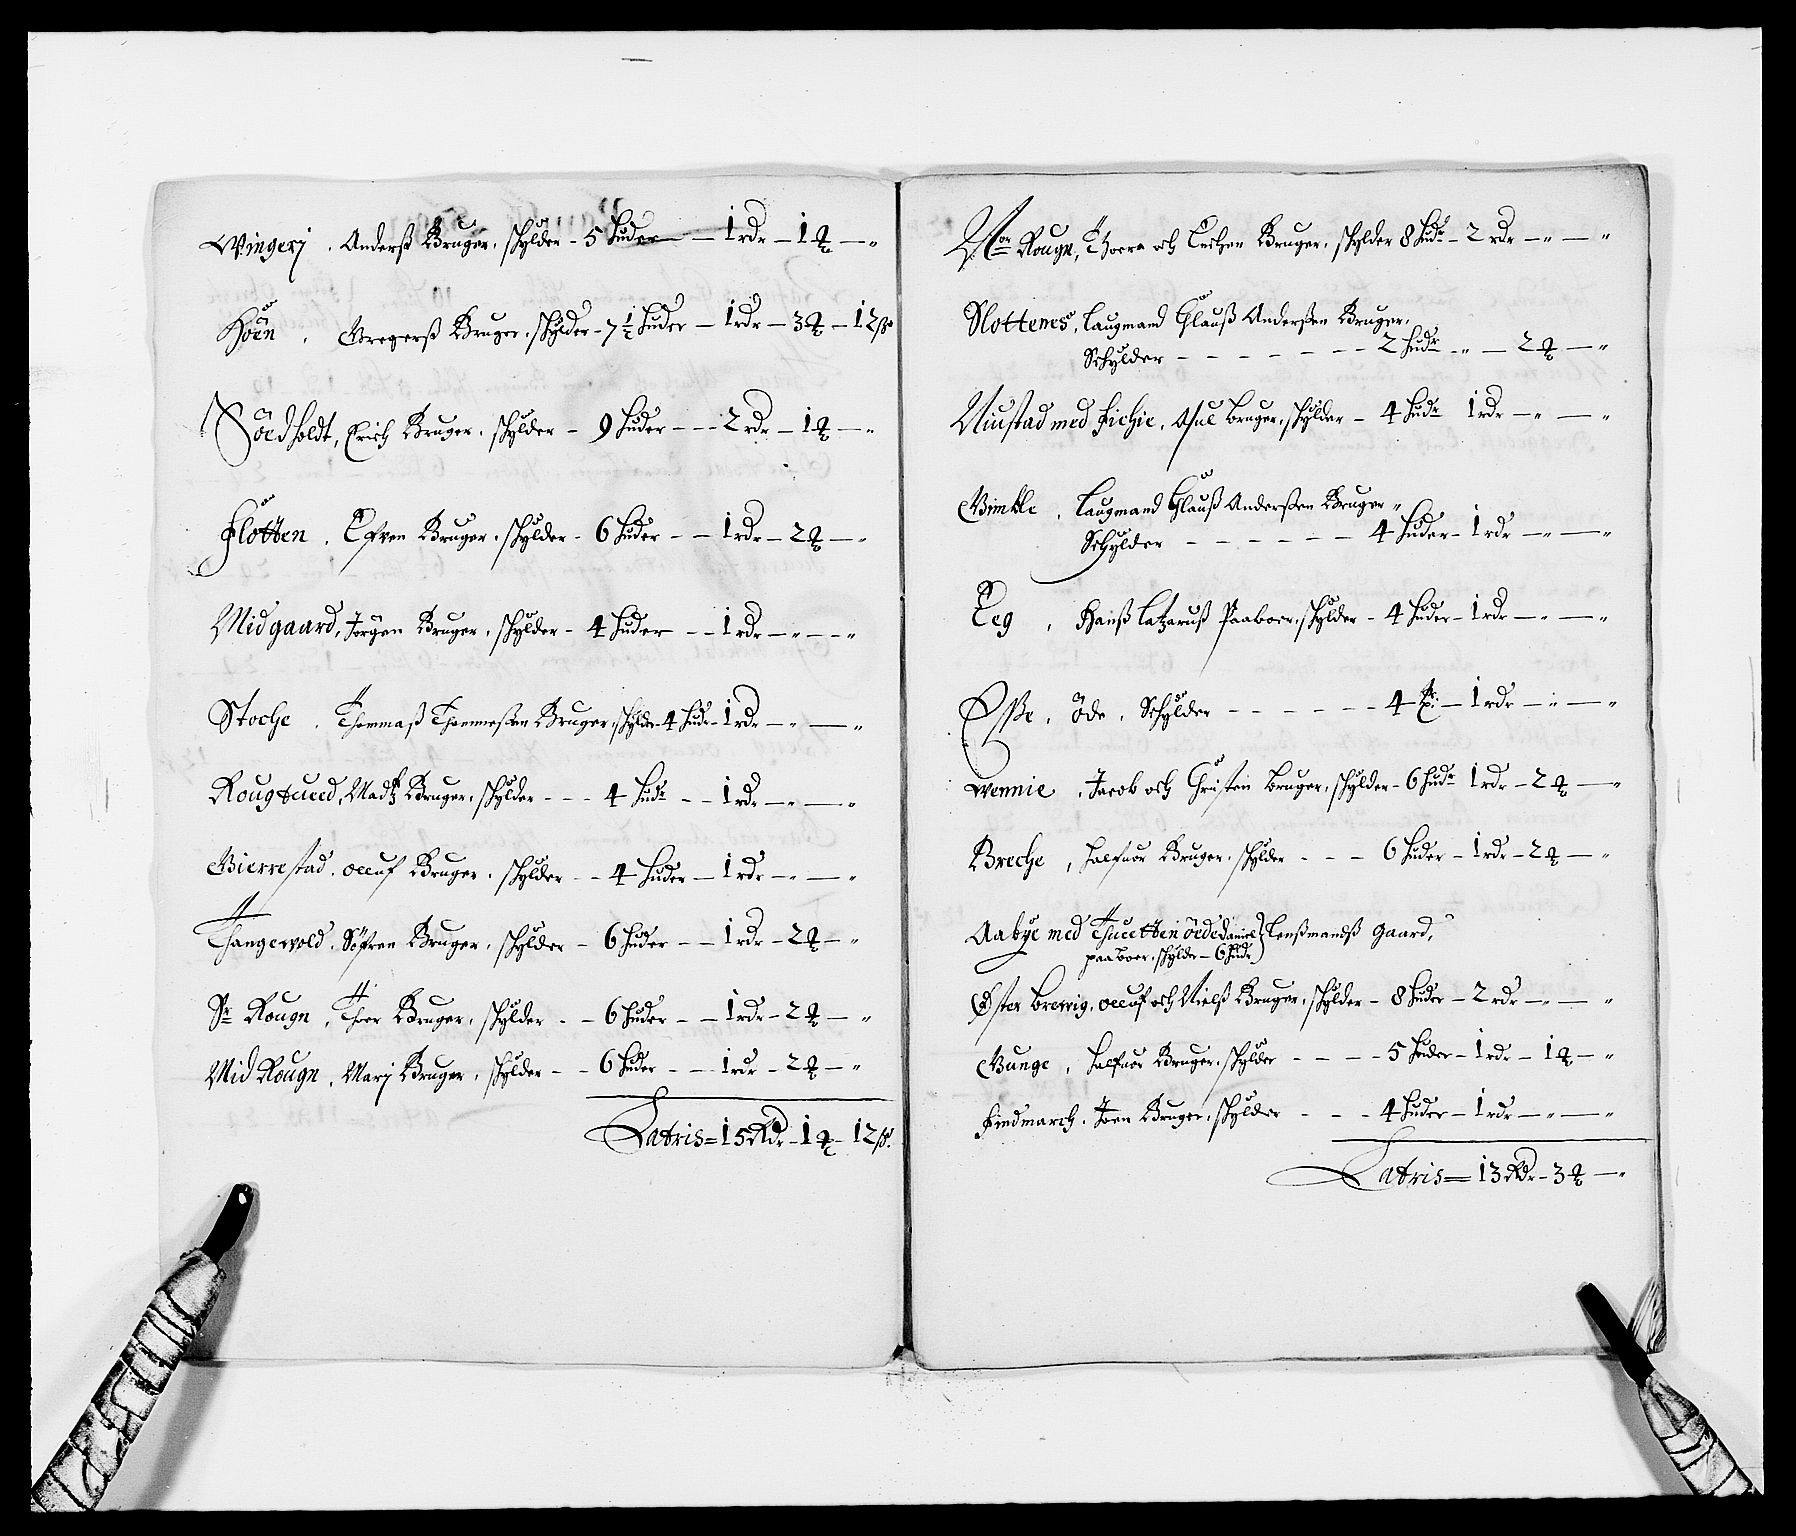 Wingerj . Anderß Bruger. schylder - 5 huder — 1 rdr — 1 ꝗ — "
Höen . Gregerß Bruger. schylder - 7 1/2 huder — 1 rdr — 3 ꝗ — 12 ß
Södholdt, Erich Bruger. schylder - 9 huder - - 2 rdr — 1 ꝗ — "
Flotten . Efven Bruger. schylder - 6 huder - - 1 rdr — 2 ꝗ — "
Midgaard, Jörgen Bruger. schylder - 4 huder - - 1 rdr — " — "
Stoche . Thommaß Thommeßen Bruger. schylder 4 hudr - 1 rdr — " — "
Rougtued, Madtz Bruger. schylder - - - 4 hudr - - 1 rdr — " — "
Bierrestad. oelluf Bruger. schylder - - 4 huder — 1 rdr — " — "
Thangevold. Söfren Bruger. schylder - 6 huder - - 1 rdr - 2 ꝗ — "
Sr Rougn , Thor Bruger. schylder - - 6 huder - - 1 rdr - 2 ꝗ — "
Mid Rougn , Marj Bruger, schylder - - 6 huder - - 1 rdr - 2 ꝗ — "
Latris = 15 Rdr - 1 ꝗ - 12 ß.
Nor Rougn, Thorra och Erichen Bruger. schylder 8 hudr - 2 rdr — " — "
Slottenes, Laugmand Clauß Anderßen Bruger.
Schylder - - - - - - - 2 hudr " — 2 ꝗ — "
Niustad med Fichie, Asul bruger, schylder - 4 hudr 1 rdr — " — "
Bimble , Laugmand Clauß Anderßen Bruger "
Schylder - - - - - - 4 huder - 1 rdr — " — "
Eeg , Hanß Latzaruß Paaboer, schylder - 4 huder - 1 rdr — " — "
öde , Schylder - - - - - - 4 — 1 rdr — " — "
Wennie , Jacob och Christen bruger, schylder - 6 hudr 1 rdr - 2 ꝗ — "
Breche , halfuor Bruger. schylder - - - 6 huder - 1 rdr - 2 ꝗ — "
Aabye med Thuetten öede Daniel) Lenßmandß gaard,
paaboer. schylder - 6 hudr)
Øster brevig, oelluf och Nielß Bruger, schylder - 8 huder - 2 rdr — " — "
Bunge , halfuor Bruger. schylder - - - - 5 huder - 1 rdr - 1 ꝗ — "
Findmarch. Joen Bruger. schylder - - - 4 huder - 1 rdr — " — "
Latris = 13 Rdr - 3 ꝗ — "